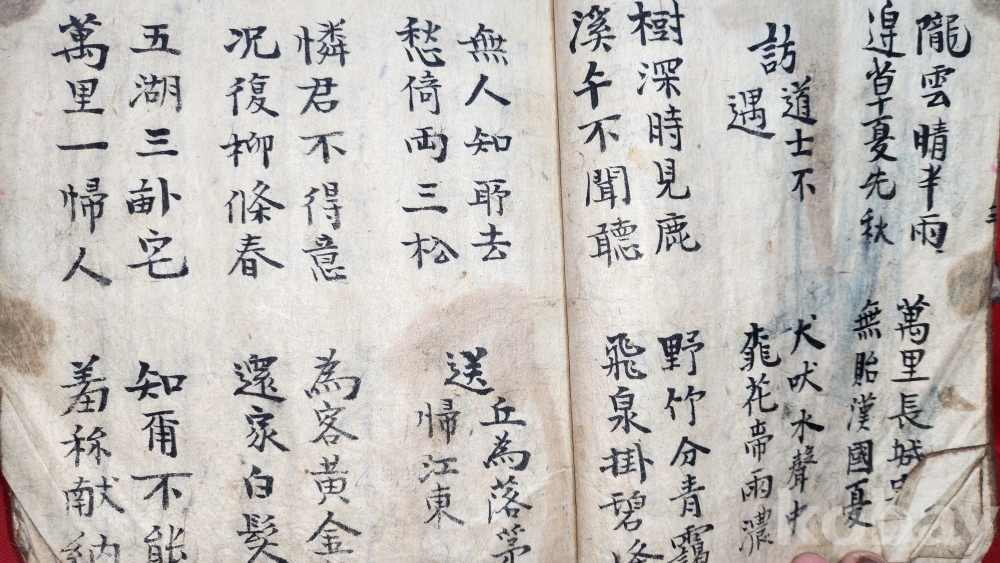 隴雲晴半雨
邉草夏先秋
萬里長城
無貽漢國憂
訪道士不
遇
犬吠水聲中
桃花帶雨濃
樹深時見鹿
溪午不聞聽
野竹分青靄
飛泉掛碧峰
無人知所去
愁倚兩三松
送丘為落第
帰江東
憐君不得意
况復柳條春
為客黃金
還家白髮
五湖三畝宅
萬里一帰人
知爾不能
羞称献納
kobay